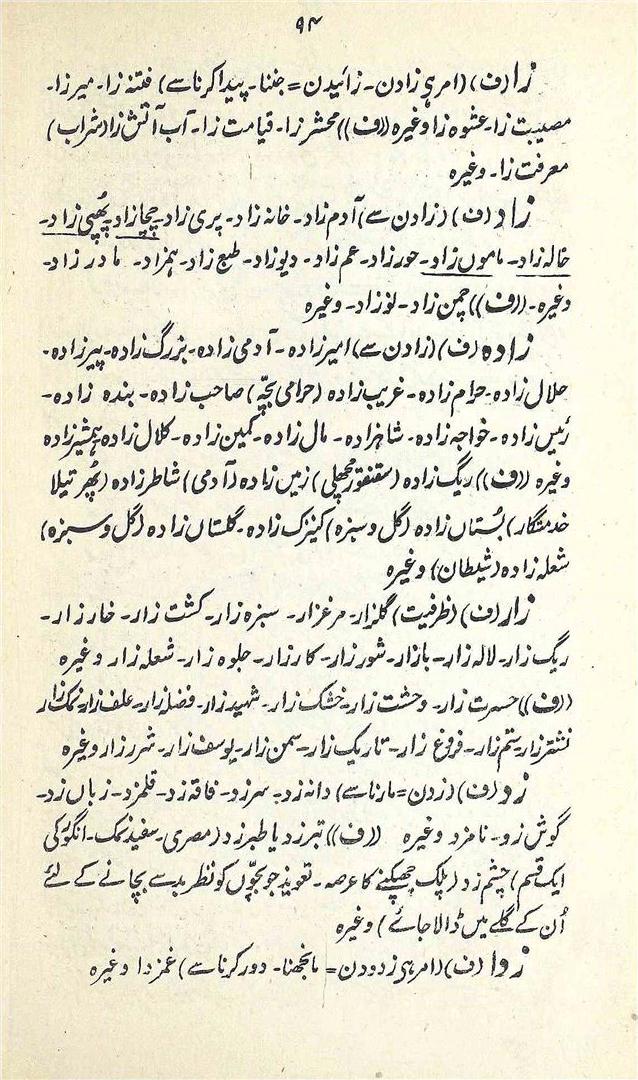 ۹۴
زا (ف) (امر ہی زادن۔ زائیدن = جننا۔ پیدا کرنا سے) فتنہ زا۔ میرزا۔
مصیبت زا۔ عشوہ زا وغیرہ ((ف)) محشر زا۔ قیامت زا۔ آب آتش زا (شراب)
معرفت زا۔ وغیرہ
زاد (ف) (زادن سے) آدم زاد۔ خانہ زاد۔ پری زاد۔ چچا زاد۔ پھپی زاد۔
خالہ زاد۔ ماموں زاد۔ حور زاد۔ عم زاد۔ دیو زاد۔ طبع زاد۔ ہمزاد۔ مادر زاد۔
وغیرہ۔ ((ف)) چمن زاد۔ نوزاد۔ وغیرہ
زادہ (ف) (زادن سے) امیر زادہ۔ آدمی زادہ۔ بزرگ زادہ۔ پیر زادہ۔
حلال زادہ۔ حرام زادہ۔ غریب زادہ (حرامی بچّہ) صاحب زادہ۔ بندہ زادہ۔
رئیس زادہ۔ خواجہ زادہ۔ شاہزادہ۔ مال زادہ۔ کمین زادہ۔ کلال زادہ ہمشیر زادہ
وغیرہ ((ف)) ریگ زادہ (سقنقور مچھلی) زمیں زادہ (آدمی) شاطر زادہ (پُھرتیلا
خدمتگار) بُستاں زادہ (گل و سبزہ) کنیزک زادہ۔ گلستاں زادہ (گل و سبزہ)
شعلہ زادہ (شیطان) وغیرہ
زار (ف) (ظرفیت) گلزار۔ مرغزار۔ سبزہ زار۔ کشت زار۔ خار زار۔
ریگ زار۔ لالہ زار۔ بازار۔ شور زار۔ کارزار۔ جلوہ زار۔ شعلہ زار وغیرہ
((ف)) حسرت زار۔ وحشت زار۔ خشک زار۔ شہید زار۔ فضلہ زار۔ علف زار۔ نمک زار
نشتر زار۔ ستم زار۔ فروغ زار۔ تاریک زار۔ سمن زار۔ یوسف زار۔ شرر زار وغیرہ
زد (ف) (زدن = مارنا سے) دانہ زد۔ سرزد۔ فاقہ زد۔ قلمزد۔ زباں زد۔
گوش زد۔ نامزد وغیرہ ((ف)) تبرزد یا طبرزد (مصری۔ سفید نمک۔ انگور کی
ایک قسم) چشم زد (پلک جھپکنے کا عرصہ۔ تعویذ جو بچّوں کو نظر بد سے بچانے کے لئے
اُن کے گلے میں ڈالا جائے) وغیرہ
زدا (ف) (امر ہی زدودن = مانجھنا۔ دور کرنا سے) غمزدا وغیرہ